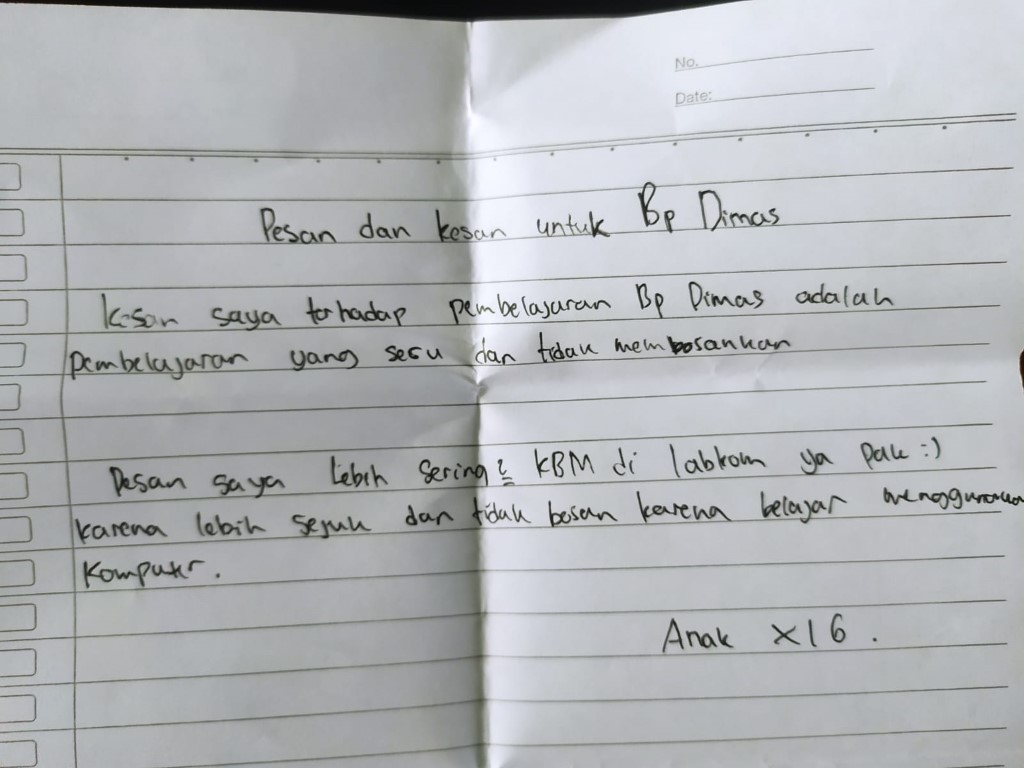 No.
Date:
Pesan dan kesan untuk Bp Dimas
Kesan saya terhadap pembelajaran Bp Dimas adalah
pembelajaran yang seru dan tidak membosankan
Pesan saya lebih sering2 KBM di labkom ya pak :)
karena lebih sejuk dan tidak bosan karena belajar menggunakan
komputer.
Anak XI 6.